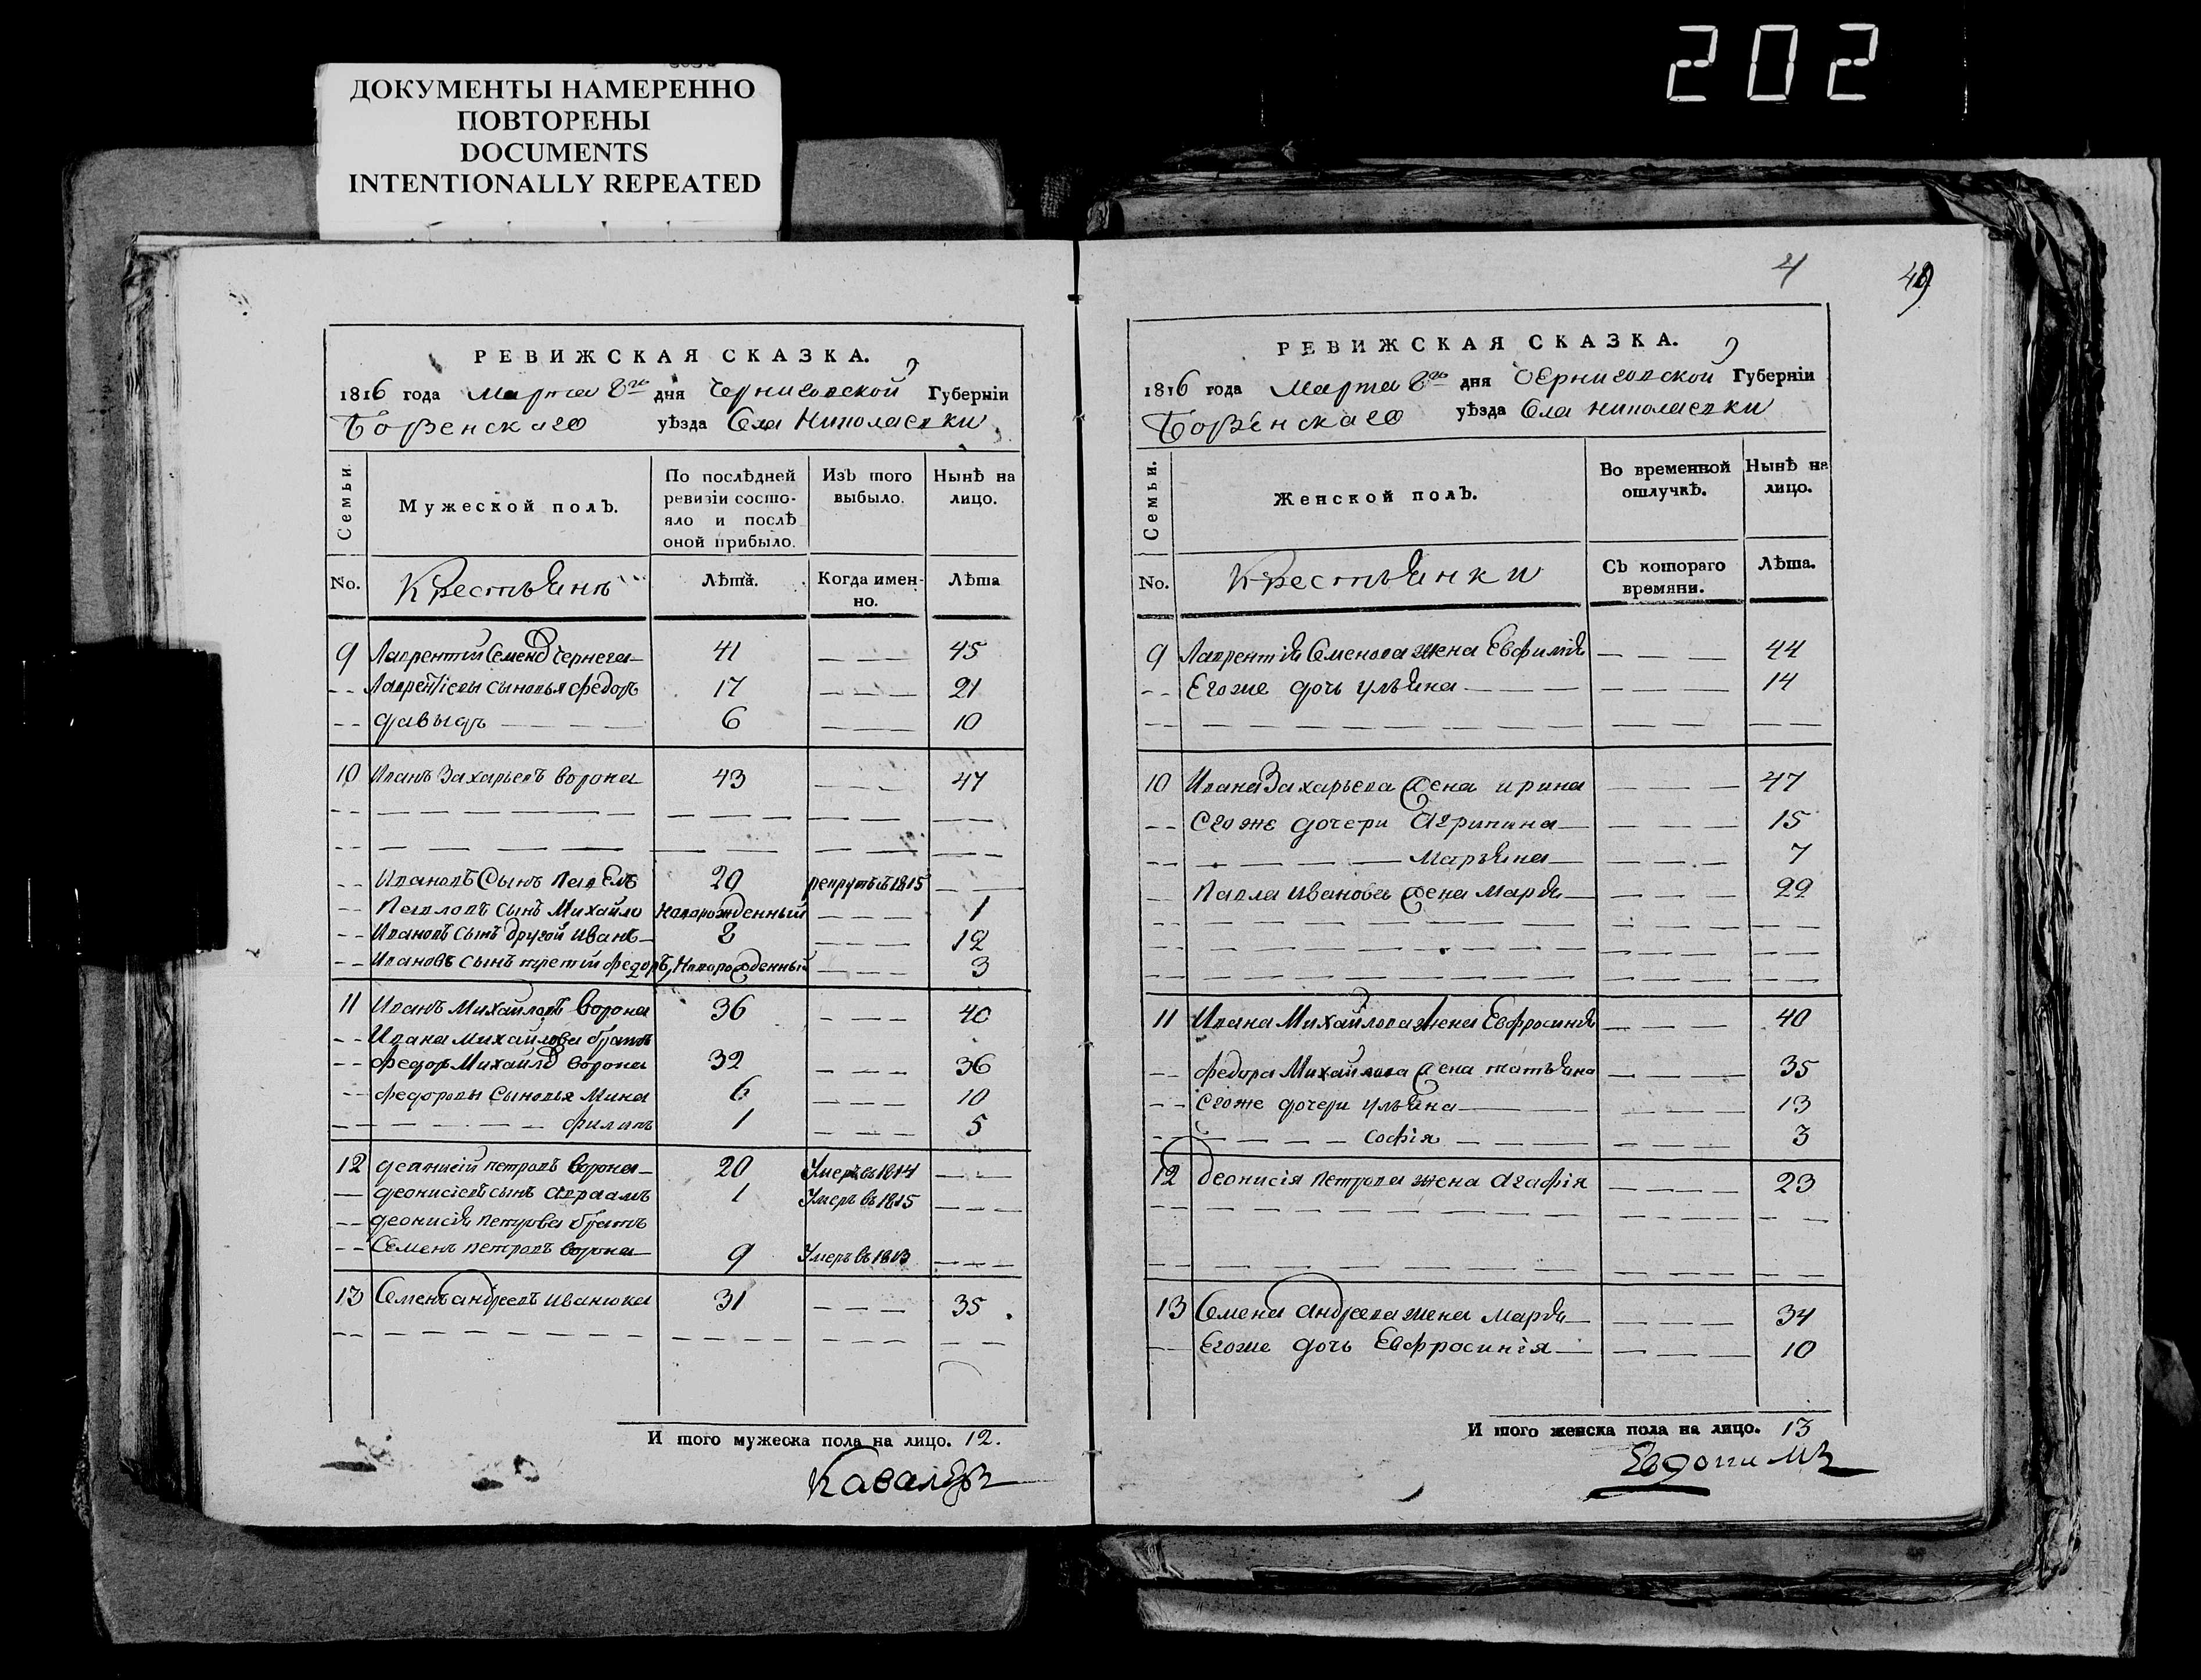 202
ДОКУМЕНТЫ НАМЕРЕННО
ПОВТОРЕНЫ
DOCUMENTS
INTENTIONALLY REPEATED
РЕВИЖСКАЯ СКАЗКА.
1816 года Марта 8го дня Черниговской Губерніи
Борзенского уѣзда Села Николаевки
Семьи. Мужеской полъ. По послѣдней ревизіи состояло и послѣ оной прибыло. Изъ того выбыло. Нынѣ на лицо.
No. Крестьянъ Лѣта. Когда именно. Лѣта
9 Лаврентій Семеновъ Чернега 41 — — — 45
-- Лаврентіевы сыновья Федоръ 17 — — — 21
-- Давыдъ 6 — — — 10
10 Иванъ Захарьевъ Ворона 43 — — — 47
-- Ивановъ Сынъ Павелъ 29 рекрутъ въ 1815 — —
-- Павловъ сынъ Михайло Новорожденный — — — 1
-- Ивановъ сынъ другой Иванъ 8 — — — 12
-- Ивановъ сынъ третій Федоръ, Новорожденный — — — 3
11 Иванъ Михайловъ Ворона 36 — — — 40
-- Ивана Михайлова братъ
-- Федоръ Михайловъ Ворона 32 — — — 36
-- Федоровы Сыновья Мина 6 — — — 10
-- Филипъ 1 — — — 5
12 Деонисій Петровъ Ворона 20 Умеръ въ 1814 — —
— Деонисіевъ сынъ Авраамъ 1 Умеръ въ 1815 — — —
-- Деонисія Петрова братъ
-- Семенъ Петровъ Ворона 9 Умеръ въ 1813 — — —
13 Семенъ Андреевъ Иванюка 31 — — — 35.
И того мужеска пола на лицо. 12.
Кавалеръ
4 49
РЕВИЖСКАЯ СКАЗКА.
1816 года Марта 8го дня Черниговской Губерніи
Борзенского уѣзда Села Николаевки
Семьи. Женской полъ. Во временной отлучкѣ. Нынѣ на лицо.
No. Крестьянки Съ котораго времяни. Лѣта.
9 Лаврентія Семенова жена Евфимія — — — 44
-- Егоже дочь Ульяна — — — 14
10 Ивана Захарьева жена Ирина — — — 47
-- Егоже дочери Агрипина — — — 15
-- Марьяна — — — 7
-- Павла Иванова жена Марья — — — 22
11 Ивана Михайлова жена Евфросинія — — — 40
-- Федора Михайлова жена Татьяна — — — 35
-- Егоже дочери Ульяна — — — 13
-- Софія — — — 3
12 Деонисія Петрова жена Агафія — — — 23
13 Семена Андреева жена Марья — — — 34
-- Егоже дочь Евфросинія — — — 10
И того женска пола на лицо. 13